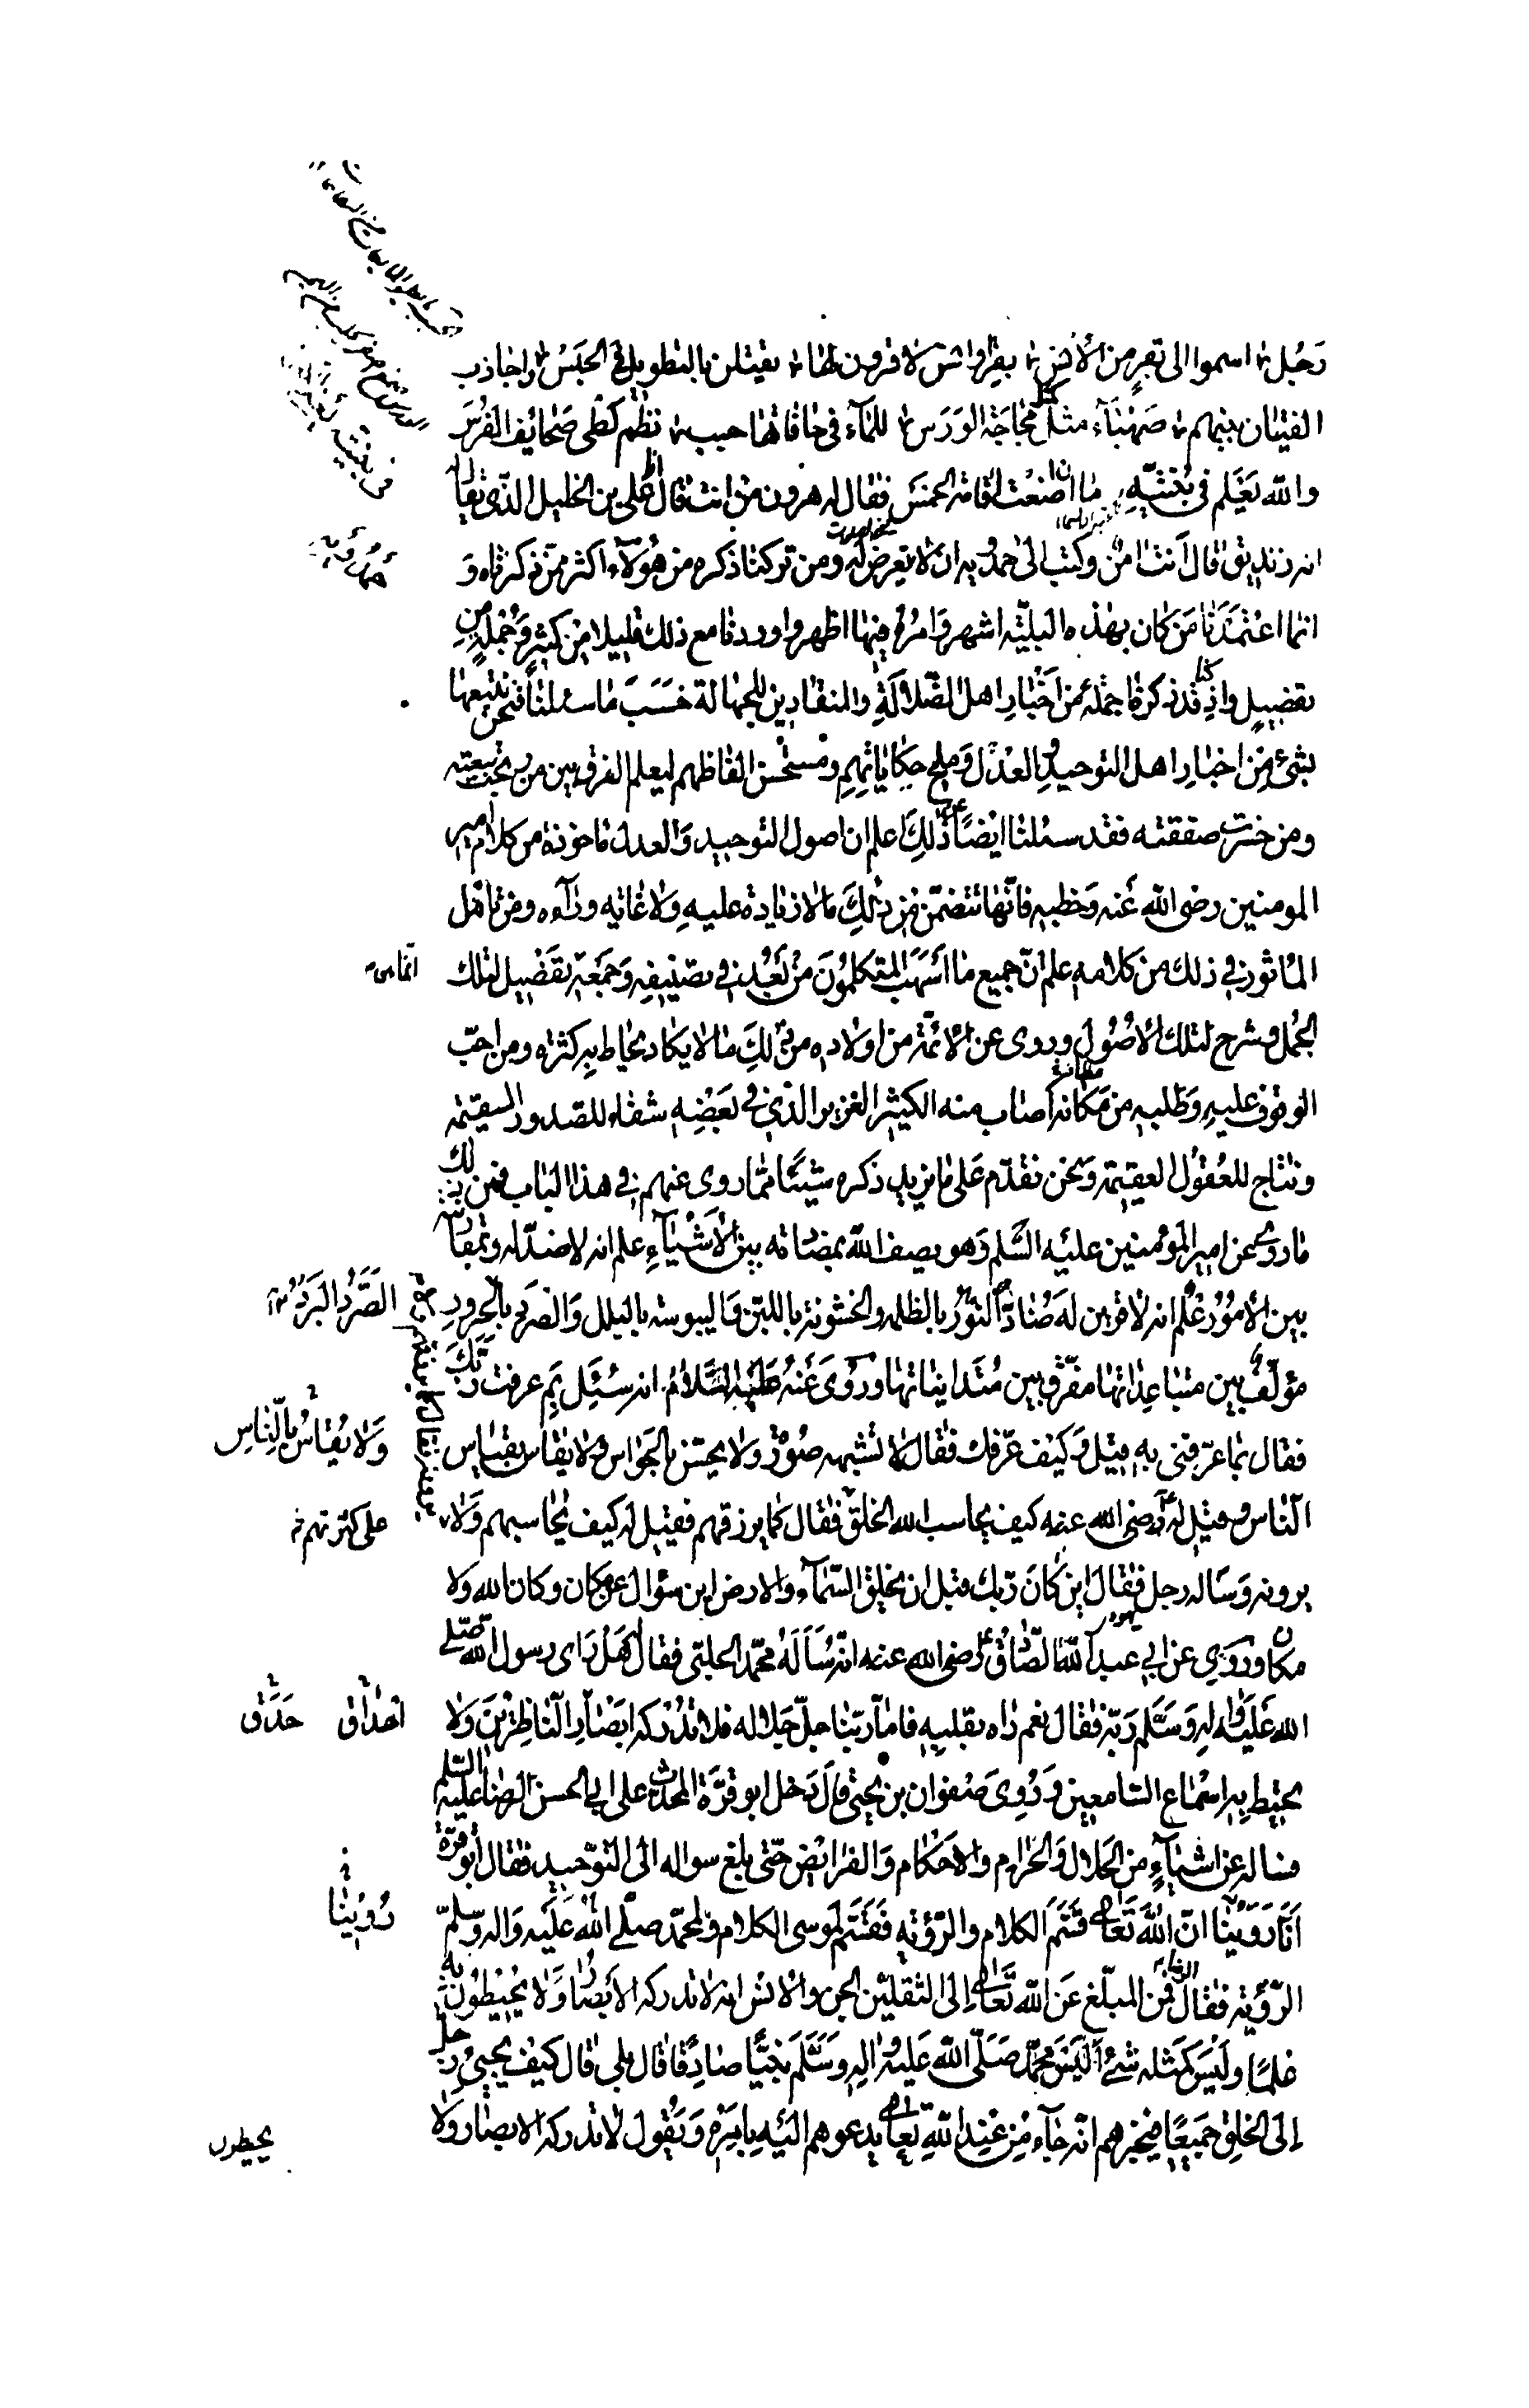 رجل اسموا الى نفر من الانس بفراش لا فرون لها يقيلن بالتطويل في الحبس واجاذب
الفتيان بينهم صهباء مثل مجاجة الورس للماء في حافاتها حبب نظم كطى صحائف الفرس
والله يعلم في بقيته ما ان اضعت اقامة الخمس فقال له هرون من انت قال على بن الخليل الذى يقال
انه زنديق قال انت امن وكتب الى حمدويه ان لا تعرض له ومن تركنا ذكره من هؤلاء اكثر ممن ذكرناه و
انما اعتمدنا من كان بهذه البلية اشهر وامره فيها اظهر واوردنا مع ذلك قليلا من كثير وجملة من
تفصيل واذ قد ذكرنا جملة من اخبار اهل الضلالة والمنقادين للجهالة حسب ما سئلنا فنحن نتبعها
بشئ من اخبار اهل التوحيد والعدل ومليح حكاياتهم ومستحسن الفاظهم ليعلم الفرق بين من ربحت بيعته
ومن خسرت صفقته فقد سئلنا ايضا ذلك اعلم ان اصول التوحيد والعدل ماخوذة من كلام امير
المومنين رضى الله عنه وخطبه فانها تتضمن من ذلك ما لا زيادة عليه ولا غاية وراءه ومن تامل
الماثور في ذلك من كلامه علم ان جميع ما اسهب المتكلمون من بعد في تصنيفه وجمعه تفصيل لتلك
الجمل وشرح لتلك الاصول وروى عن الائمة من اولاده من ذلك ما لا يكاد يحاط به كثرة ومن احب
الوقوف عليه وطلبه من مكانه اصاب منه الكثير الغزير الذى في بعضه شفاء للصدور السقيمة
ونتاج للعقول العقيمة ونحن نقدم على ما نريد ذكره شيئا مما روى عنهم في هذا الباب فمن ذلك
ما روى عن امير المؤمنين عليه السلم وهو يصف الله بمضادته بين الاشياء علم انه لا ضد له وبمقارنته
بين الامور علم انه لا قرين له ضاد النور بالظلمة والخشونة باللين واليبوسة بالبلل والصرد بالحرور
الصرد البرد
مؤلف بين متباعداتها مفرق بين متدانياتها وروى عنه عليه السلام انه سئل بم عرفت ربك
فقال بما عرفنى به قيل وكيف عرفك فقال لا تشبهه صورة ولا يحس بالحواس ولا يقاس بقياس
ولا يقاس بالناس
الناس وقيل له رضى الله عنه كيف يحاسب الله الخلق فقال كما يرزقهم فقيل له كيف يحاسبهم ولا
على كثرتهم
يرونه وساله رجل فقال اين كان ربك قبل ان يخلق السماء والارض اين سؤال عن مكان وكان الله ولا
مكان وروى عن ابي عبد الله الصادق رضى الله عنه انه ساله محمد الحلبى فقال هل راى رسول الله صلى
الله عليه واله وسلم ربه فقال نعم راه بقلبه فاما ربنا جل جلاله فلا تدركه ابصار الناظرين ولا
احداق حدق
يحيط به اسماع السامعين وروى صفوان بن يحيى قال دخل ابو قرة المحدث على ابي الحسن الرضا عليه السلم
فساله عن اشياء من الحلال والحرام والاحكام والفرائض حتى بلغ سواله الى التوحيد فقال ابو قرة
انا روينا ان الله تعالى قسم الكلام والرؤية فقسم لموسى الكلام ولمحمد صلى الله عليه واله وسلم
روينا
الرؤية فقال فمن المبلغ عن الله تعالى الى الثقلين الجن والانس انه لا تدركه الابصار ولا يحيطون به
علما وليس كمثله شئ اليس محمد صلى الله عليه واله وسلم نبيا صادقا قال بلى قال كيف يجيئ رجل
الى الخلق جميعا فيخبرهم انه جاء من عند الله تعالى يدعوهم اليه بامره ويقول لا تدركه الابصار ولا
يحيطون